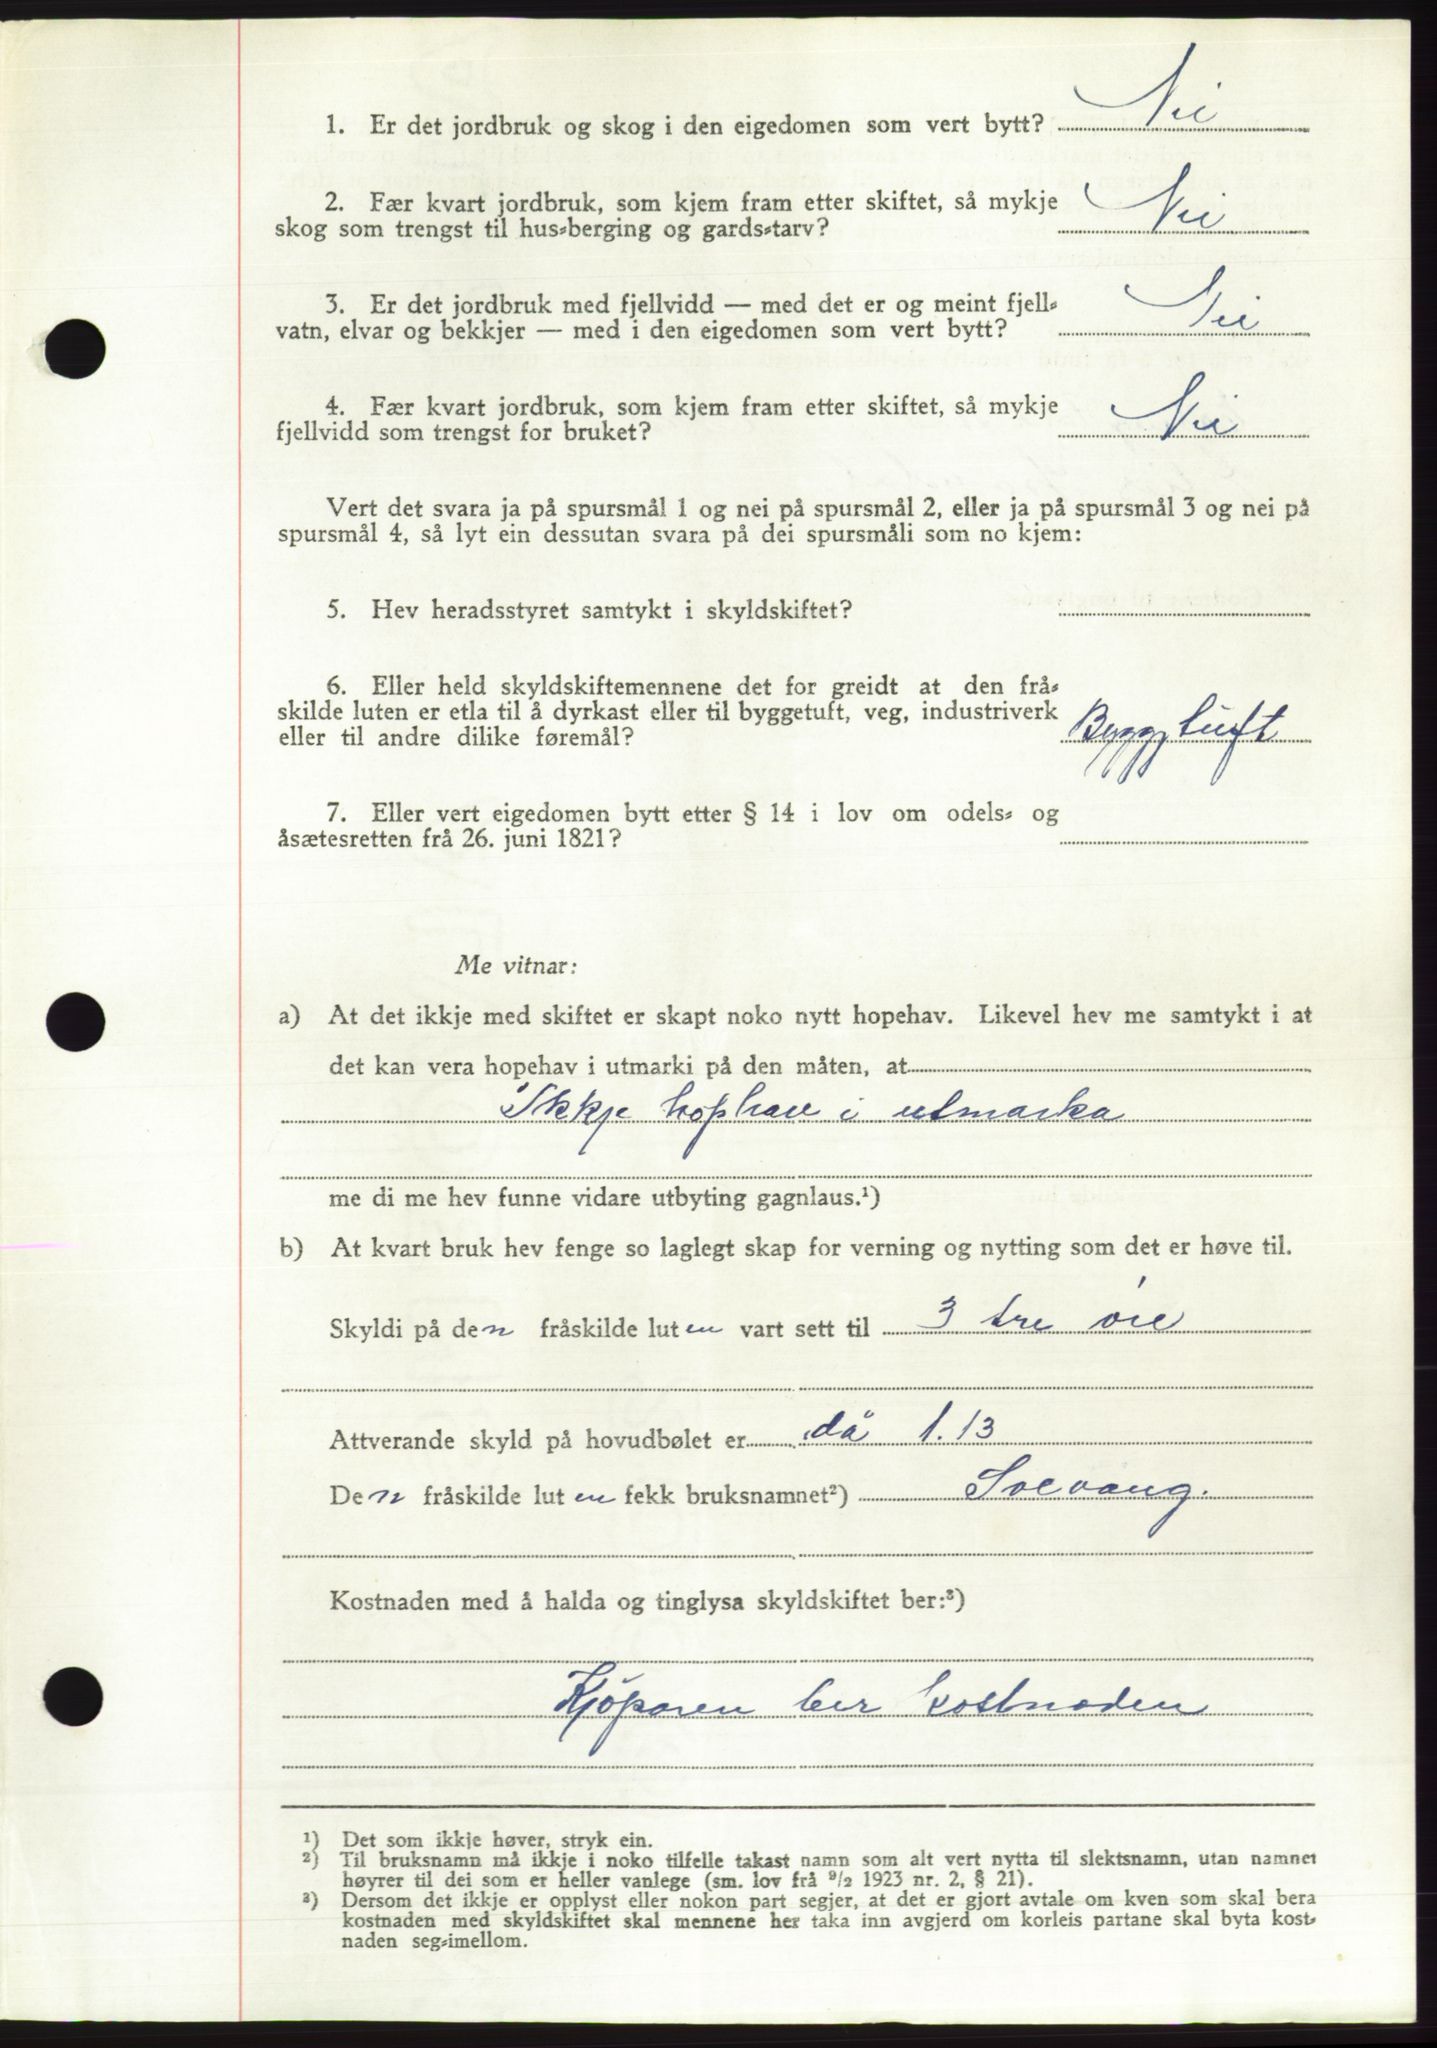 1. Er det jordbruk og skog i den eigedomen som vert bytt? Nei
2. Fær kvart jordbruk, som kjem fram etter skiftet, så mykje
skog som trengst til hus-berging og gards-tarv? Nei
3. Er det jordbruk med fjellvidd — med det er og meint fjell-
vatn, elvar og bekkjer — med i den eigedomen som vert bytt? Nei
4. Fær kvart jordbruk, som kjem fram etter skiftet, så mykje
fjellvidd som trengst for bruket? Nei
Vert det svara ja på spursmål 1 og nei på spursmål 2, eller ja på spursmål 3 og nei på
spursmål 4, så lyt ein dessutan svara på dei spursmåli som no kjem:
5. Hev heradsstyret samtykt i skyldskiftet?
6. Eller held skyldskiftemennene det for greidt at den frå-
skilde luten er etla til å dyrkast eller til byggetuft, veg, industriverk
eller til andre dilike føremål? Byggetuft
7. Eller vert eigedomen bytt etter § 14 i lov om odels- og
åsætesretten frå 26. juni 1821?
Me vitnar:
a) At det ikkje med skiftet er skapt noko nytt hopehav. Likevel hev me samtykt i at
det kan vera hopehav i utmarki på den måten, at
Ikkje hophav i utmarka
me di me hev funne vidare utbyting gagnlaus.¹)
b) At kvart bruk hev fenge so laglegt skap for verning og nytting som det er høve til.
Skyldi på den fråskilde luten vart sett til 3 tre öre
Attverande skyld på hovudbølet er då 1.13
Den fråskilde luten fekk bruksnamnet²) Solvang.
Kostnaden med å halda og tinglysa skyldskiftet ber:³)
Kjöparen ber kostnaden
¹) Det som ikkje høver, stryk ein.
²) Til bruksnamn må ikkje i noko tilfelle takast namn som alt vert nytta til slektsnamn, utan namnet
høyrer til dei som er heller vanlege (sm. lov frå 9/2 1923 nr. 2, § 21).
³) Dersom det ikkje er opplyst eller nokon part segjer, at det er gjort avtale om kven som skal bera
kostnaden med skyldskiftet skal mennene her taka inn avgjerd om korleis partane skal byta kost-
naden seg-imellom.